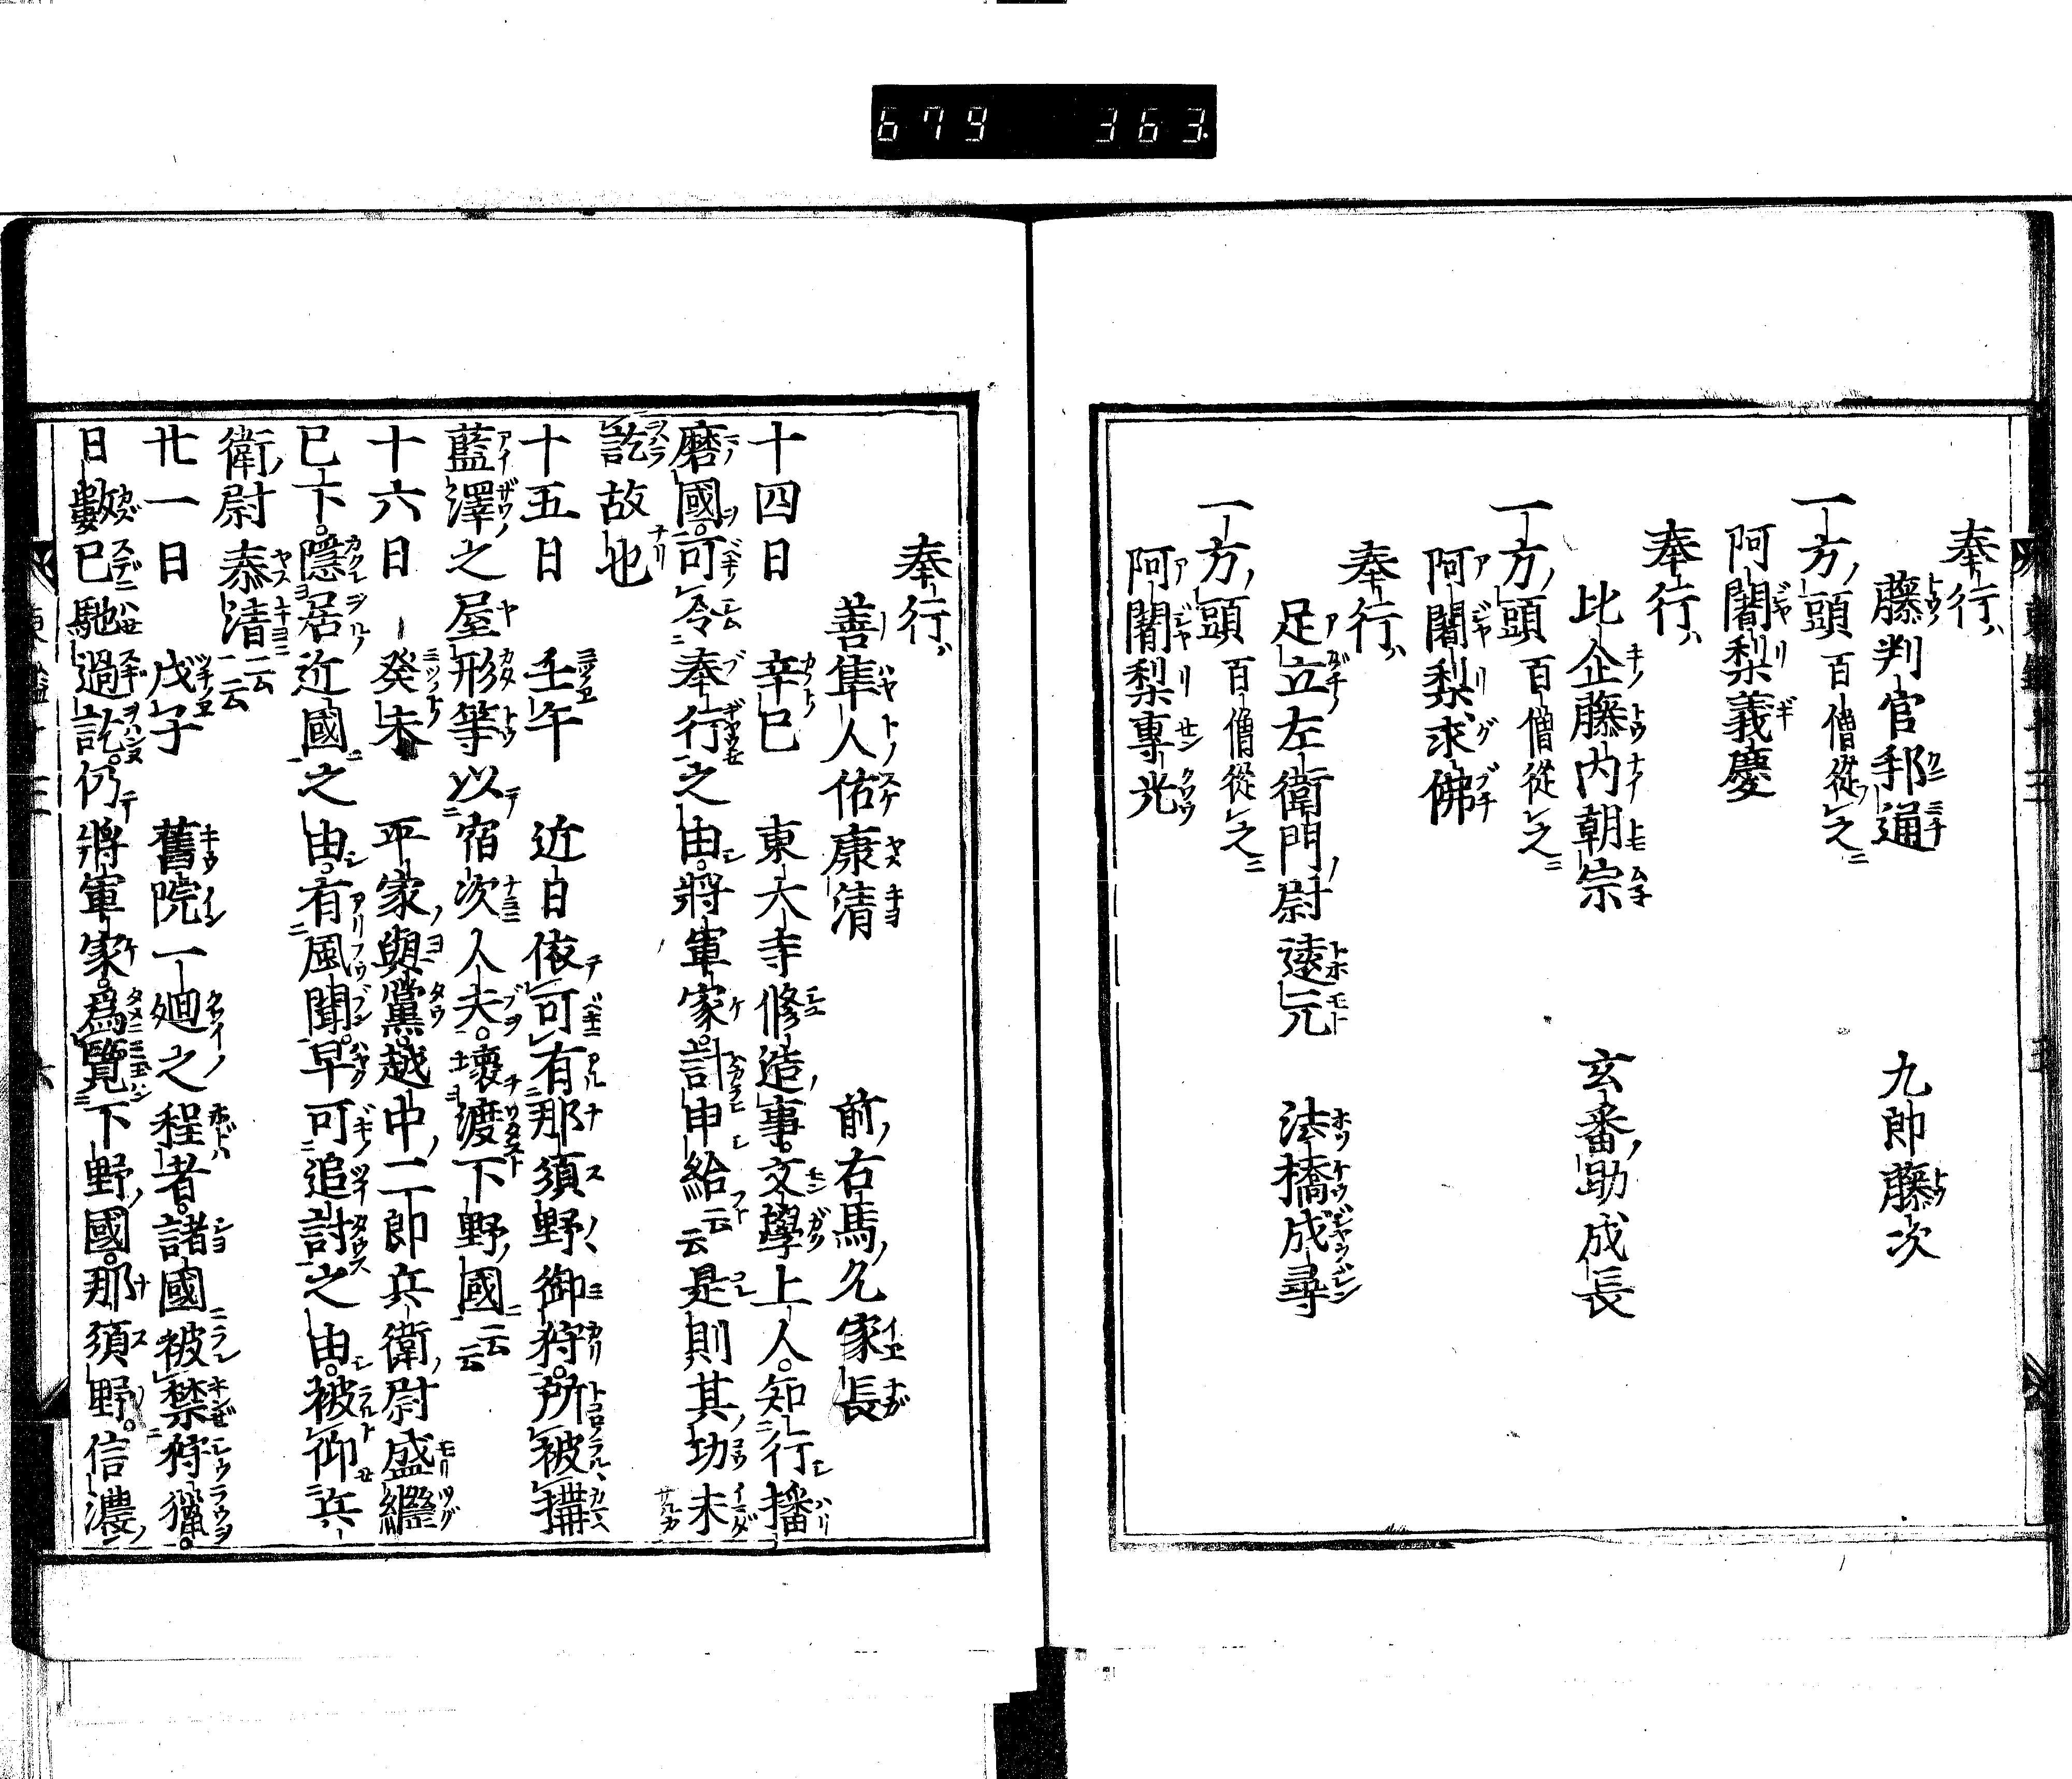 679 363
奉行
藤判官邦通 九郎藤次
一方頭 百僧從之
阿闍梨義慶
奉行
比企藤内朝宗 玄番助成長
一方頭 百僧從之
阿闍梨求佛
奉行
足立左衛門尉遠元 法橋成尋
一方頭 百僧從之
阿闍梨專光
奉行
善隼人佑康清 前右馬允家長
十四日 辛巳 東大寺修造事。文學上人。知行播
磨國。可令奉行之由。將軍家。計申給云云是則其功未
訖故也
十五日 壬午 近日依可有那須野御狩。所被搆
藍澤之屋形等以宿次人夫。壞渡下野國云云
十六日 癸未 平家與黨。越中二郎兵衛尉盛繼
已下。隱居近國之由。有風聞。早可追討之由。被仰兵
衛尉泰清云云
廿一日 戊子 舊院一廻之程者。諸國被禁狩獵。
日數已馳過訖。仍將軍家。爲覽下野國。那須野。信濃